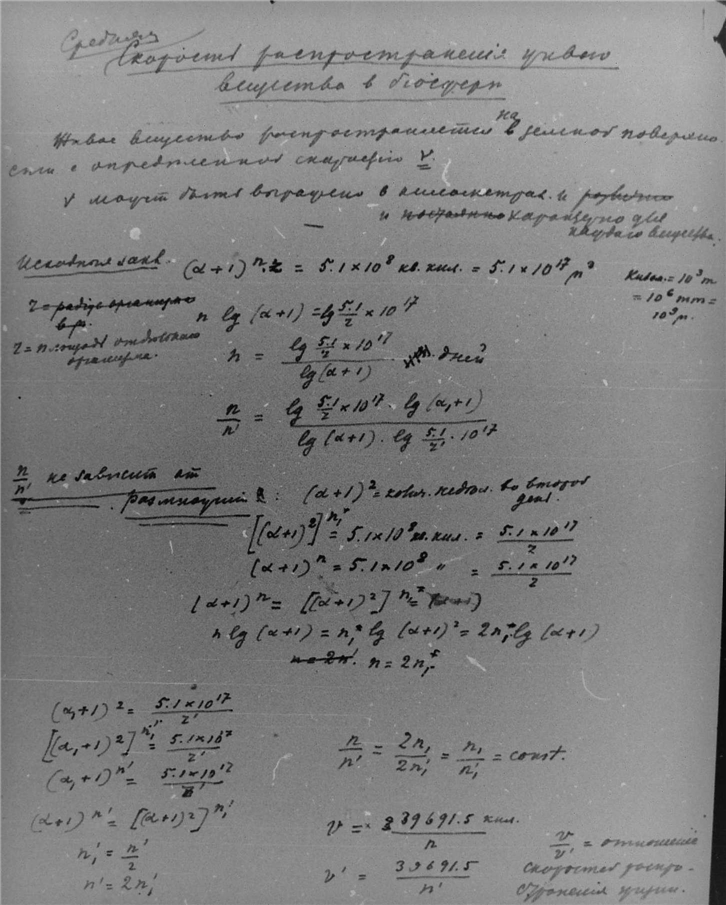 Средняя
Скорость распространенія живого
вещества в біосферѣ
Живое вещество распространяется на в земной поверхно
сти с определенной скоростью v.
v может быть выражено в километрах и
и постоянно характерно для
каждого вещества.
Исходныя (α+1)ⁿ·z = 5.1×10⁸ кв. кил. = 5.1×10¹⁷ μ²
Килом. = 10³ m
= 10⁶ mm =
10⁹ μ.
z = радіус организма
в μ.
z = площадь отдѣльнаго
организма.
n lg (α+1) = lg 5.1/z × 10¹⁷
n = lg 5.1/z × 10¹⁷ / lg (α+1) дней
n/n' = lg 5.1/z × 10¹⁷ · lg (α₁+1) / lg (α+1) · lg 5.1/z' · 10¹⁷
n/n' не зависит от
размноженія : (α+1)² = колич. недѣл. во второй
день.
[(α+1)²]ⁿ₁* = 5.1×10⁸ кв. кил. = 5.1×10¹⁷/z
(α+1)ⁿ = 5.1×10⁸ " = 5.1×10¹⁷/z
(α+1)ⁿ = [(α+1)²]ⁿ₁* = (α+1)
n lg (α+1) = n₁* lg (α+1)² = 2n₁* lg (α+1)
n = 2n'. n = 2n₁*
(α₁+1)² = 5.1×10¹⁷/z'
[(α₁+1)²]ⁿ₁' = 5.1×10¹⁷/z'
(α₁+1)ⁿ' = 5.1×10¹⁷/z'
n/n' = 2n₁/2n₁' = n₁/n₁' = const.
(α+1)ⁿ' = [(α+1)²]ⁿ₁'
n₁' = n'/2
n' = 2n₁'
v = 39691.5 кил./n
v' = 39691.5/n'
v/v' = отношеніе
скоростей распро-
страненія жизни.